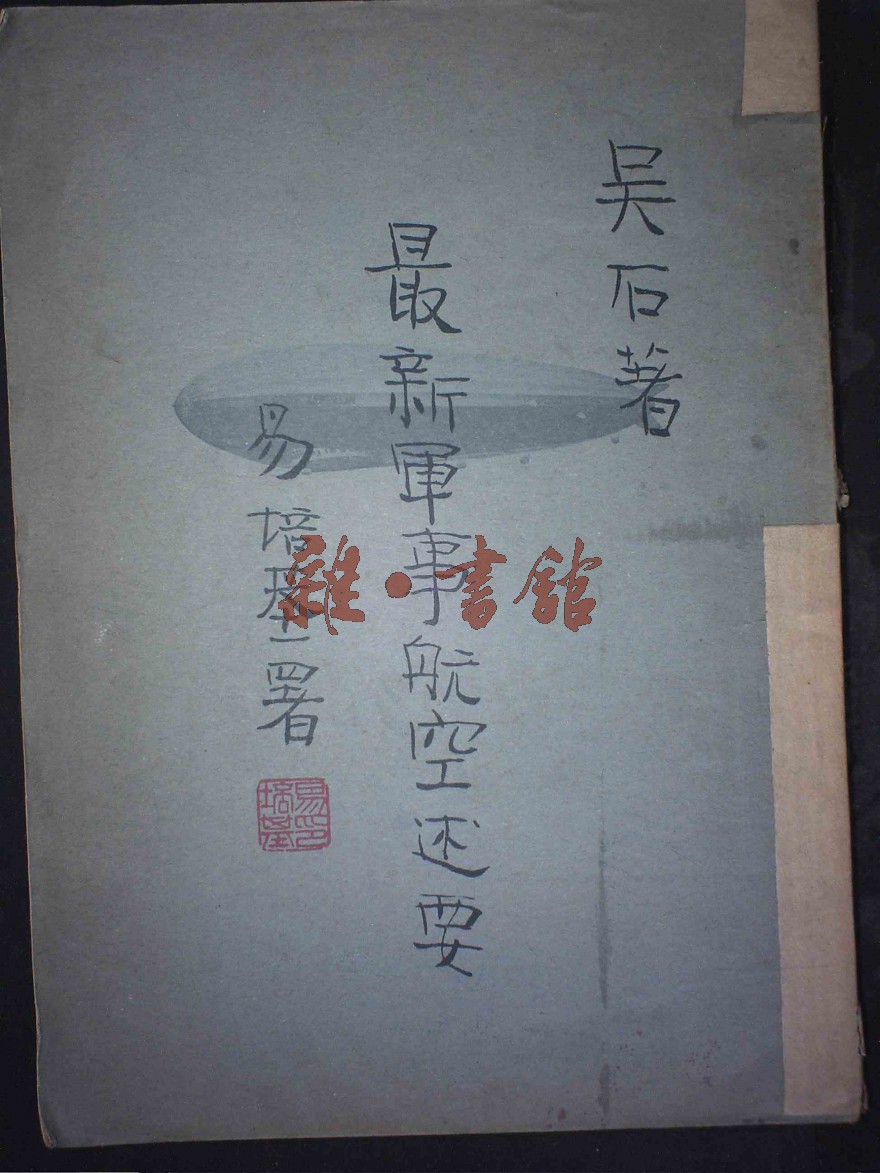 吴石著
最新軍事航空述要
易培基署
易印培基
雜·書館